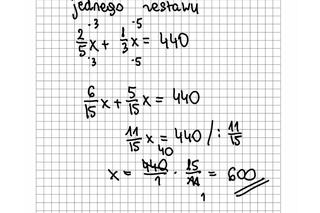 jednego zestawu
·3 ·5
2/5 x + 1/3 x = 440
·3 ·5
6/15 x + 5/15 x = 440
11/15 x = 440 /: 11/15
40
x = 440/1 · 15/11 = 600
1